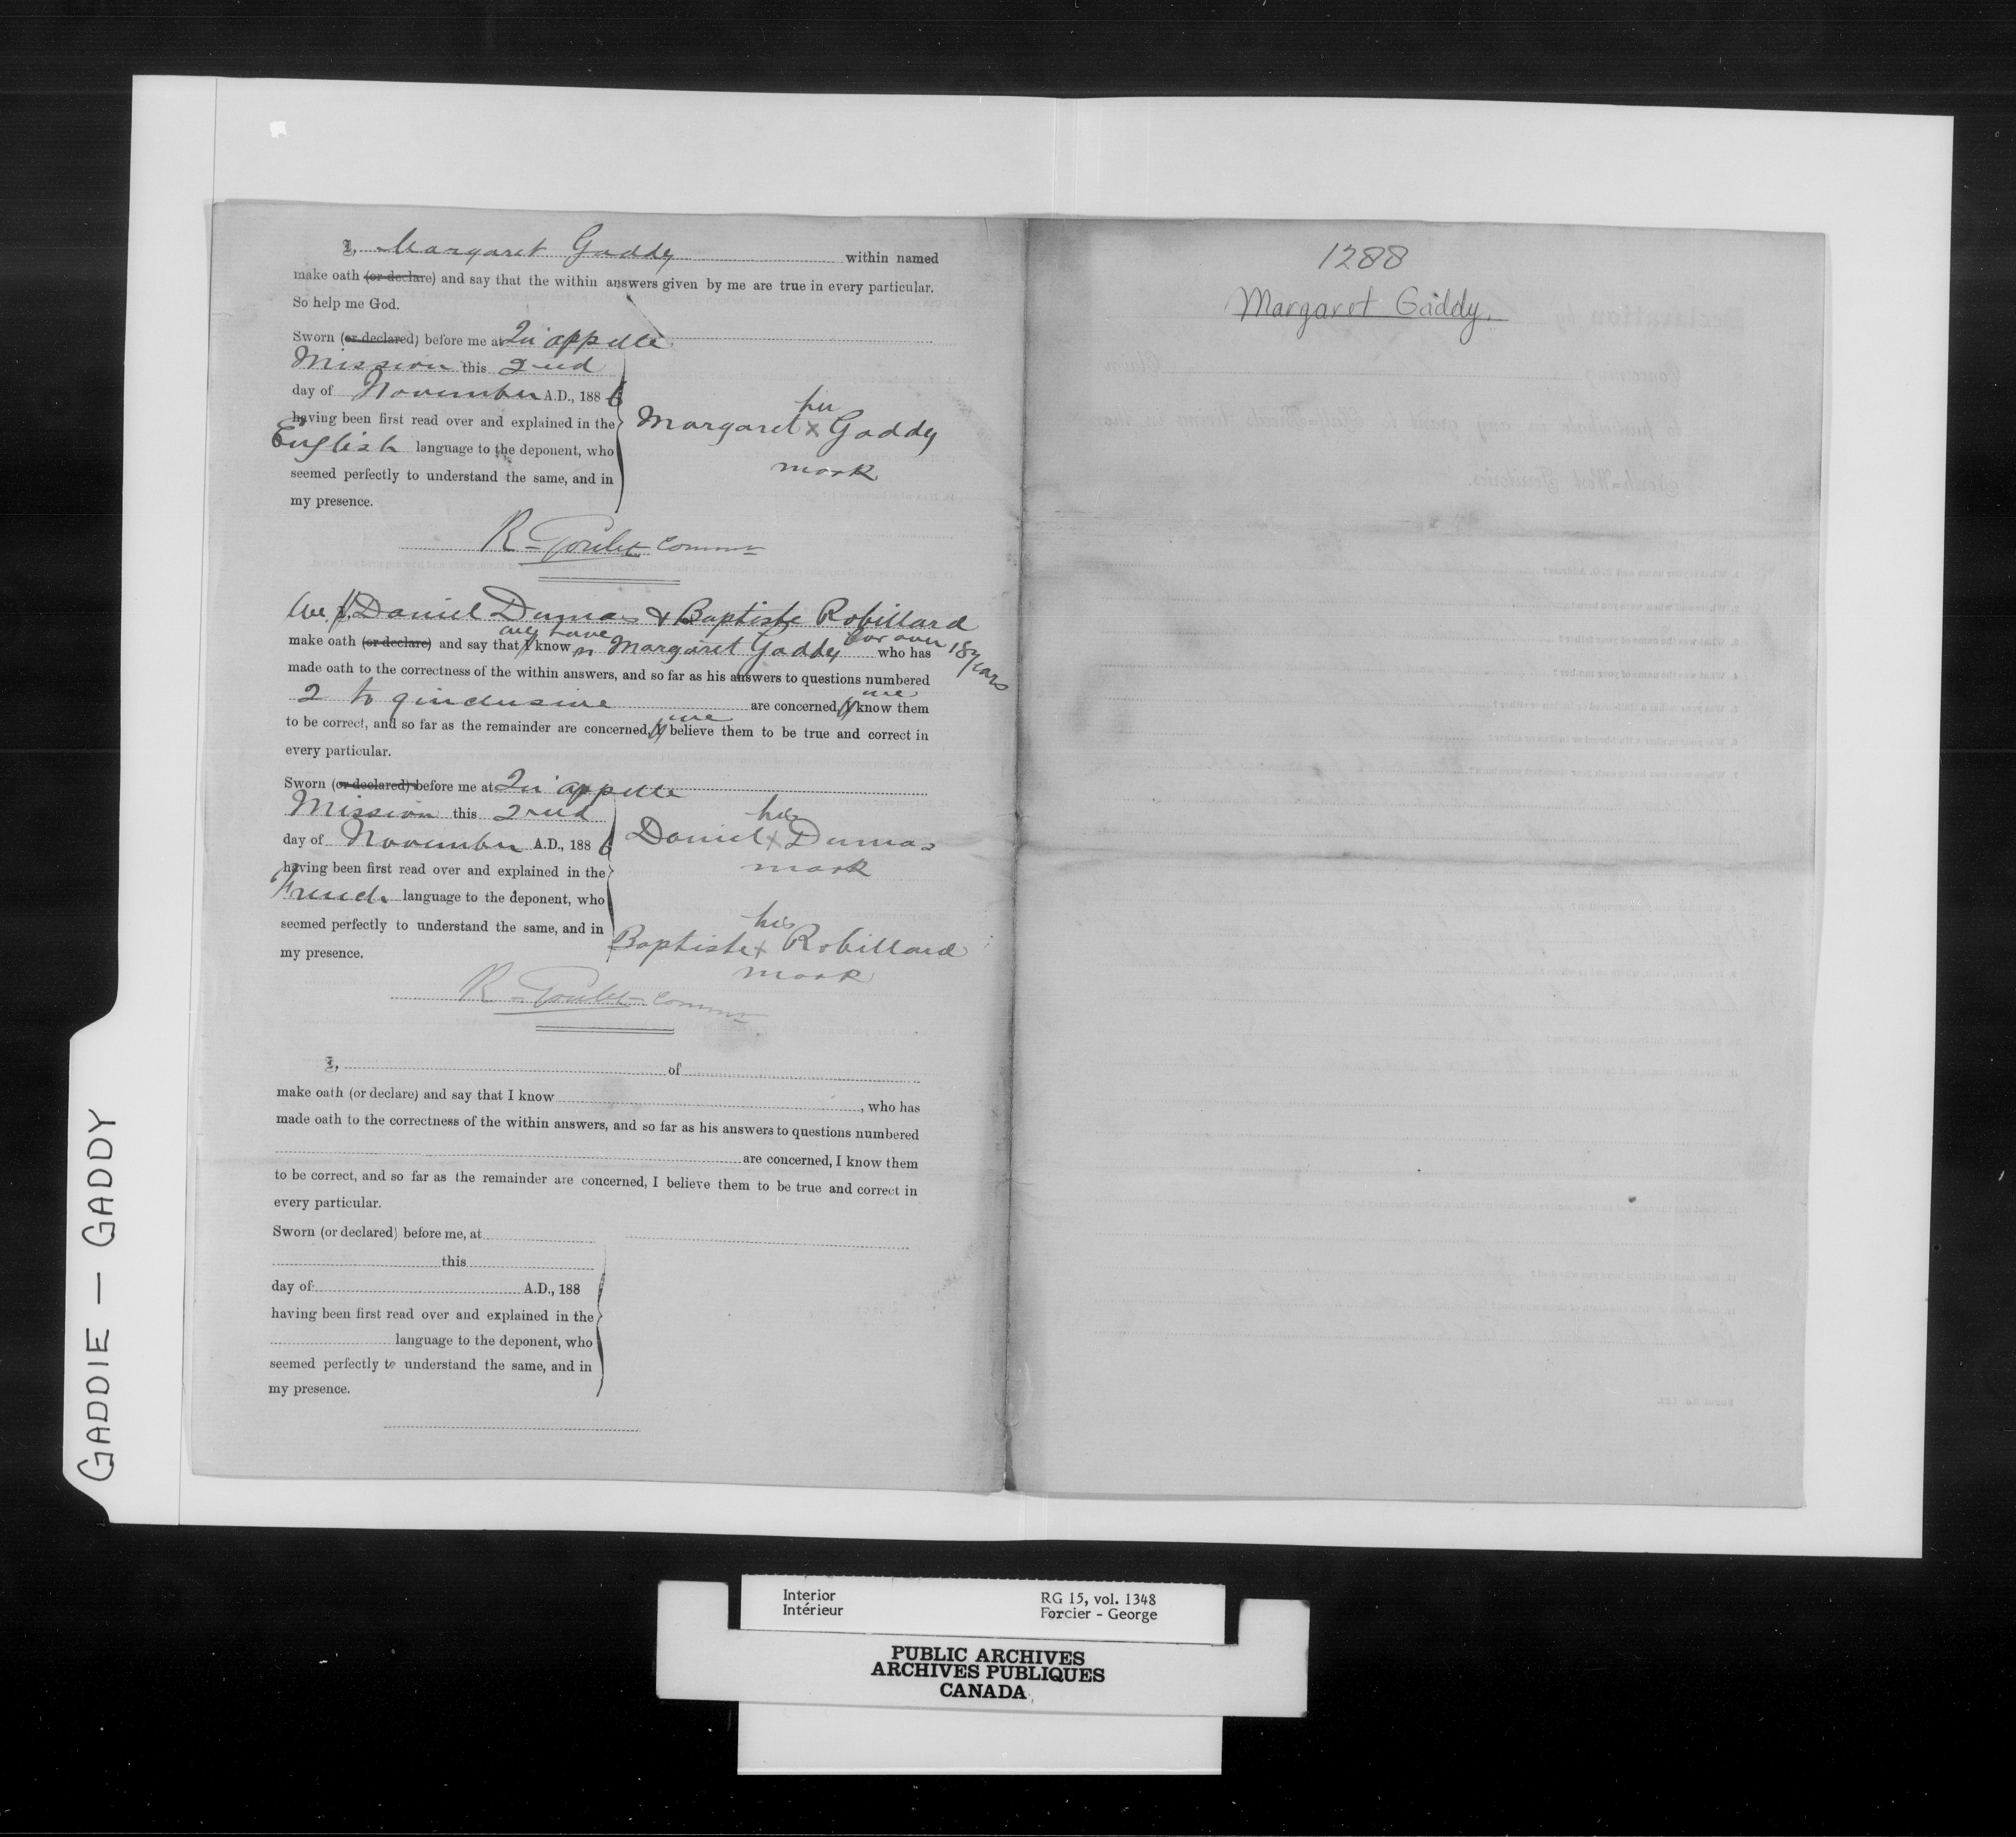 I, Margaret Gaddy within named
make oath (or declare) and say that the within answers given by me are true in every particular.
So help me God.
Sworn (or declared) before me at Qu'appelle
Mission this 2nd
day of November A.D., 1886
having been first read over and explained in the
English language to the deponent, who
seemed perfectly to understand the same, and in
my presence.
her
Margaret x Gaddy
mark
R Goulet Commr
We I, Daniel Dumas & Baptiste Robillard
make oath (or declare) and say that I we have known Margaret Gaddy for over 18 years who has
made oath to the correctness of the within answers, and so far as his answers to questions numbered
2 to 9 inclusive are concerned, I we know them
to be correct, and so far as the remainder are concerned, I we believe them to be true and correct in
every particular.
Sworn (or declared) before me at Qu'appelle
Mission this 2nd
day of November A.D., 1886
having been first read over and explained in the
French language to the deponent, who
seemed perfectly to understand the same, and in
my presence.
his
Daniel x Dumas
mark
his
Baptiste x Robillard
mark
R Goulet Commr
I, of
make oath (or declare) and say that I know , who has
made oath to the correctness of the within answers, and so far as his answers to questions numbered
are concerned, I know them
to be correct, and so far as the remainder are concerned, I believe them to be true and correct in
every particular.
Sworn (or declared) before me, at
this
day of A.D., 188
having been first read over and explained in the
language to the deponent, who
seemed perfectly to understand the same, and in
my presence.
1288
Margaret Gaddy.
GADDIE — GADDY
Interior
Intérieur
RG 15, vol. 1348
Forcier - George
PUBLIC ARCHIVES
ARCHIVES PUBLIQUES
CANADA